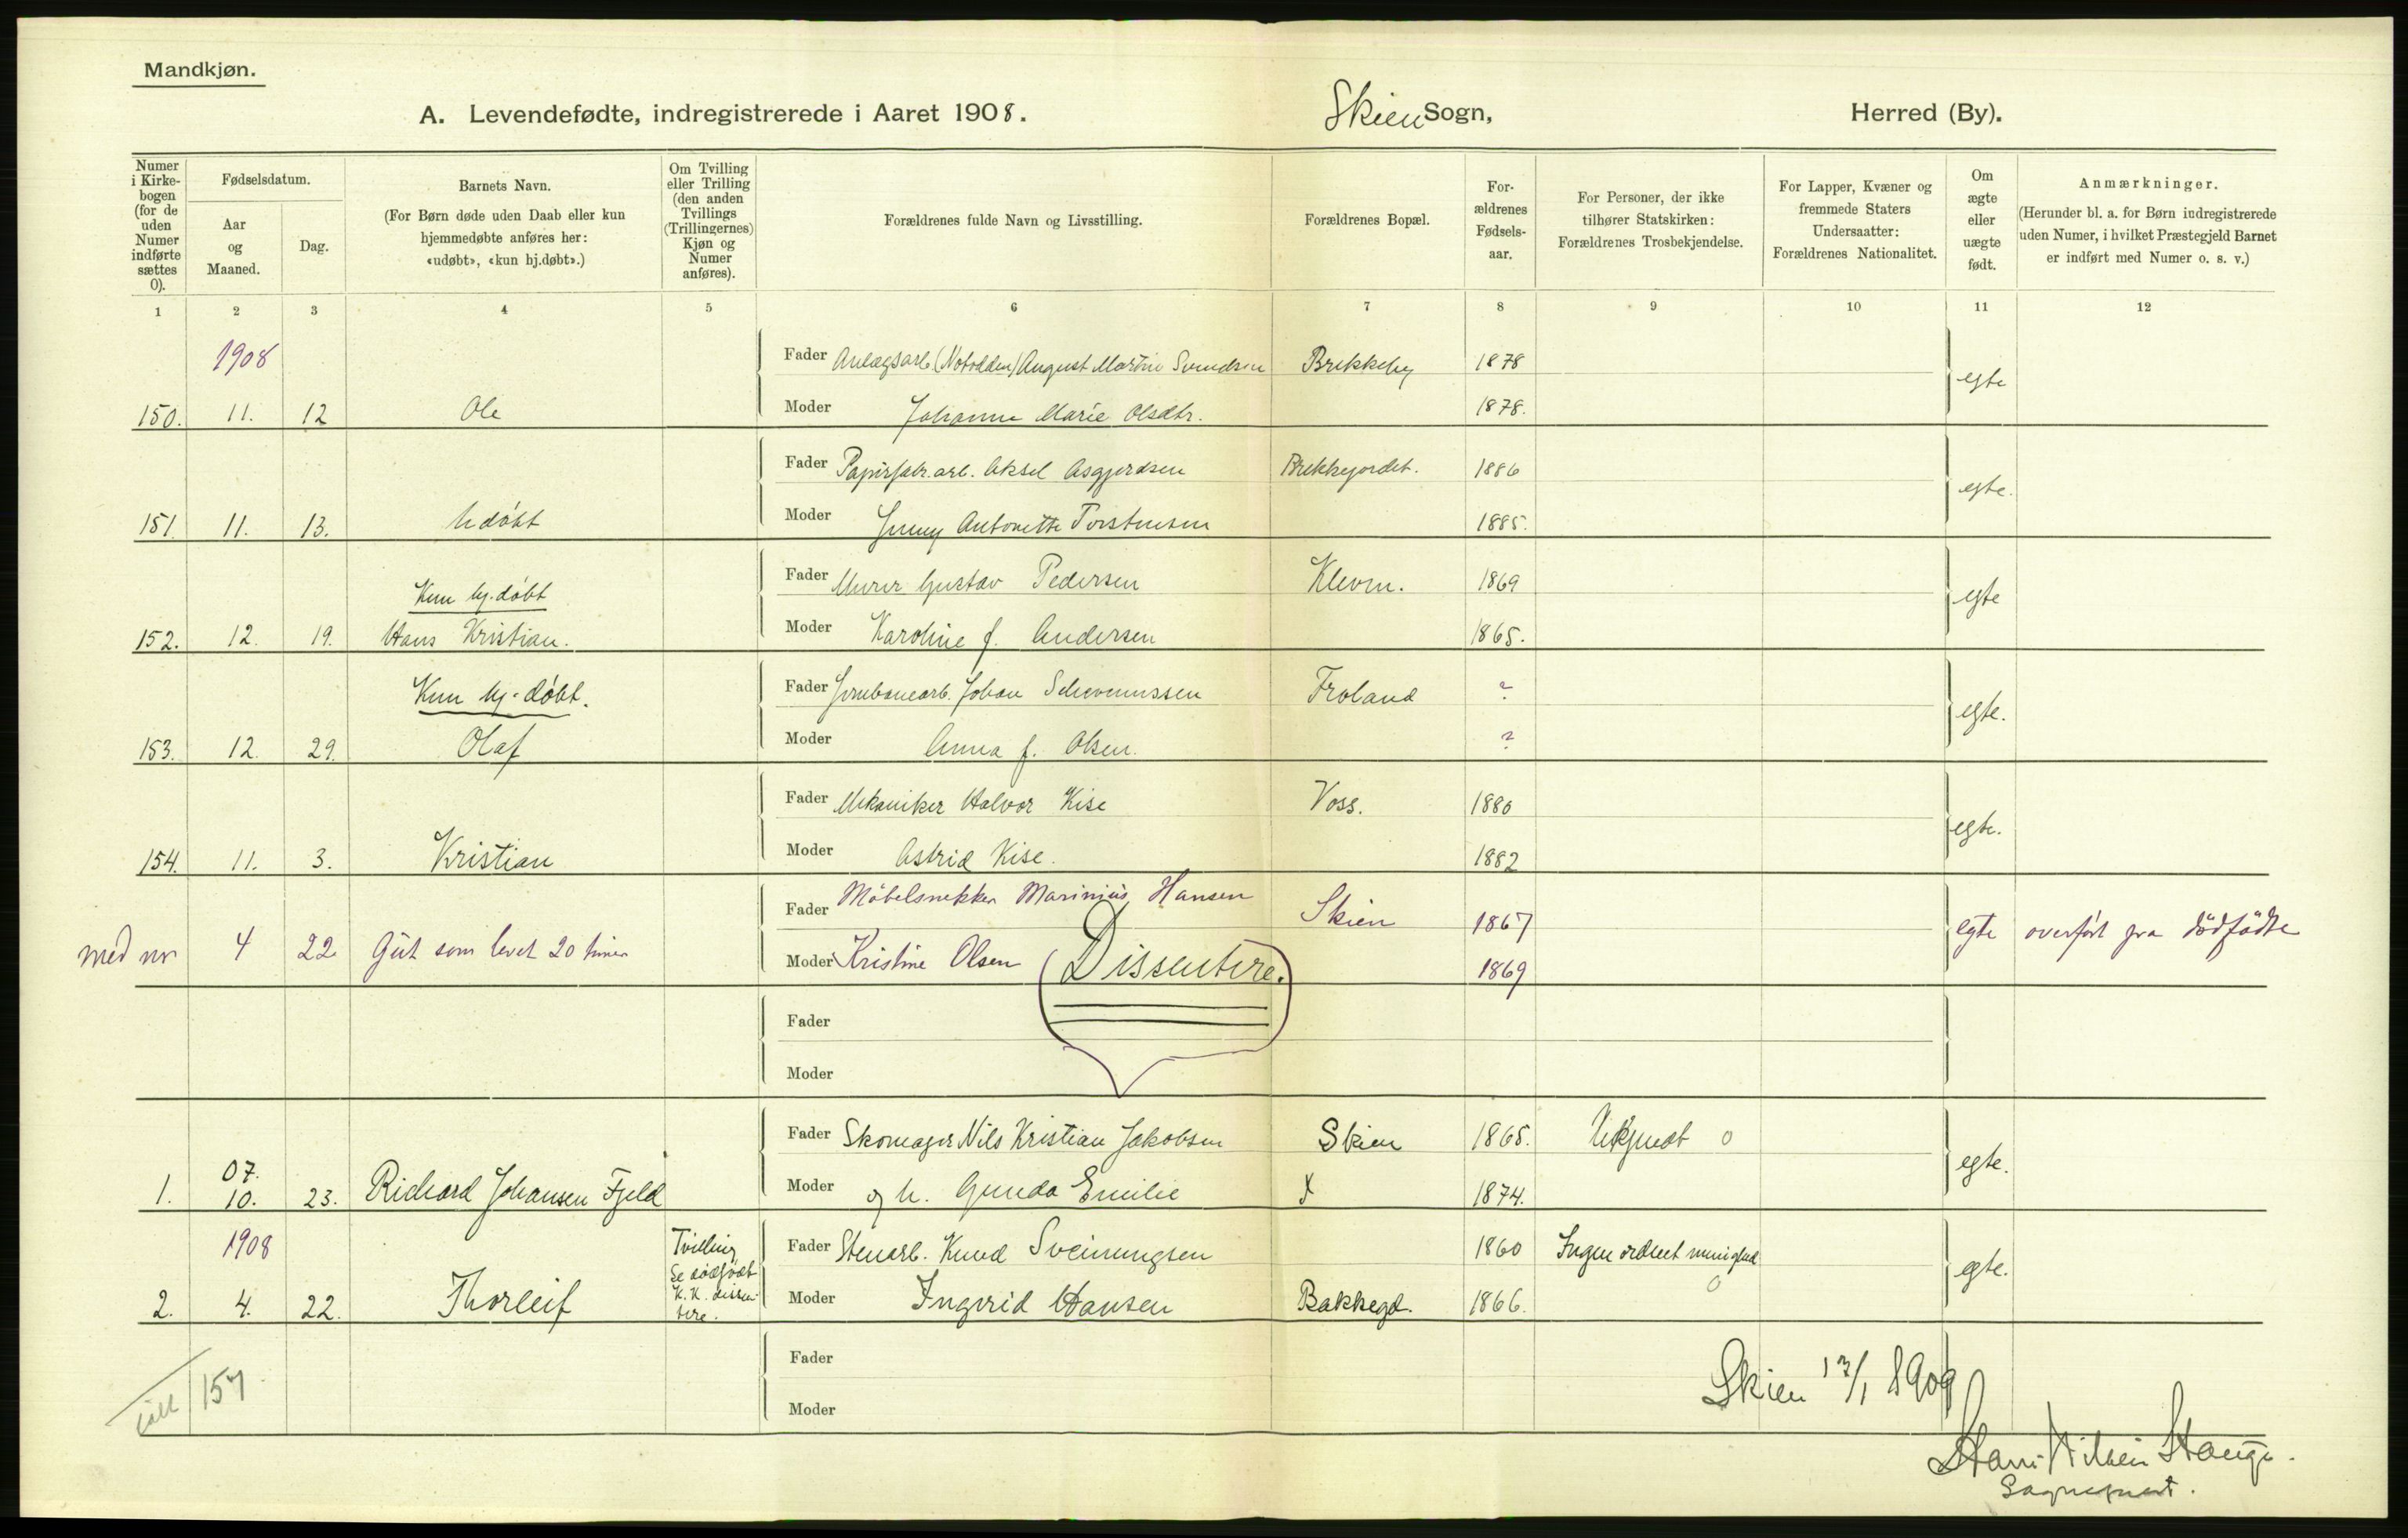 Mandkjøn.
A. Levendefødte, indregistrerede i Aaret 1908. Skien Sogn, Herred (By).
Numer i Kirkebogen (for de uden Numer indførte sættes 0).
Fødselsdatum.
Aar og Maaned.
Dag.
Barnets Navn.
(For Børn døde uden Daab eller kun hjemmedøbte anføres her: «udøbt», «kun hj.døbt».)
Om Tvilling eller Trilling (den anden Tvillings (Trillingernes) Kjøn og Numer anføres).
Forældrenes fulde Navn og Livsstilling.
Forældrenes Bopæl.
Forældrenes Fødselsaar.
For Personer, der ikke tilhører Statskirken: Forældrenes Trosbekjendelse.
For Lapper, Kvæner og fremmede Staters Undersaatter: Forældrenes Nationalitet.
Om ægte eller uægte født.
Anmærkninger.
(Herunder bl. a. for Børn indregistrerede uden Numer, i hvilket Præstegjeld Barnet er indført med Numer o. s. v.)
1 2 3 4 5 6 7 8 9 10 11 12
1908 Fader Anlægsarb. (Notodden) August Martin Svendsen Brekkeby 1878 egte
150. 11. 12 Ole Moder Johanne Marie Olsdtr. 1878.
Fader Papirfabr. arb. Aksel Asgjerdsen Brekkejordet. 1886 egte.
151. 11. 13. Udøbt Moder Jenny Antonette Torstensen 1885.
Kun hj. døbt Fader Murer Gustav Pedersen Kleven. 1869 egte
152. 12. 19. Hans Kristian. Moder Karoline f. Andersen 1865.
Kun hj. døbt. Fader Jernbanearb. Johan Froland ? egte.
153. 12. 29. Olaf Moder Anna f. Olsen. ?
Fader Mekaniker Halvor Kise Voss. 1880 egte.
154. 11. 3. Kristian Moder Astrid Kise. 1882
Fader Møbelsnekker Marinius Hansen Skien 1867
med nr 4 22 Gut som levet 20 timer Moder Kristine Olsen 1869 egte overført fra dødfødte
Dissentere.
Fader
Moder
Fader Skomager Nils Kristian Jakobsen Skien 1865. Ukjendt 0 egte.
1. 07. 10. 23. Richard Johansen Fjeld Moder og h. Gunda Emilie 1874.
1908 Tvilling Fader Stenarb. Knud Sveinungsen 1860 Ingen ordnet menighed 0 egte.
2. 4. 22. Thorleif Se dødfødt K. K. dissentere. Moder Ingerid Hansen Bakkegd. 1866.
157
Fader
Moder
Skien 13/1 1909
Sogneprest.